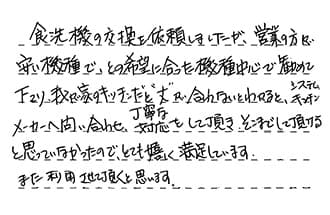 食洗機の交換を依頼しましたが、営業の方が
安い機種で、との希望に合った機種中心で勧めて
下さり、我が家のキッチンだと寸法が合わないとわかると、システムキッチン
メーカーへ問い合わせ、丁寧な対応をして頂き そこまでして頂ける
と思っていなかったのでとても嬉しく満足しています。
また利用させて頂くと思います。